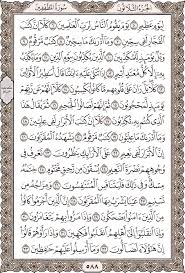 الجزء الثلاثون سورة المطففين
لِيَوْمٍ عَظِيمٍ ۝٥ يَوْمَ يَقُومُ ٱلنَّاسُ لِرَبِّ ٱلْعَٰلَمِينَ ۝٦ كَلَّآ إِنَّ كِتَٰبَ
ٱلْفُجَّارِ لَفِى سِجِّينٍ ۝٧ وَمَآ أَدْرَىٰكَ مَا سِجِّينٌ ۝٨ كِتَٰبٌ مَّرْقُومٌ ۝٩
وَيْلٌ يَوْمَئِذٍ لِّلْمُكَذِّبِينَ ۝١٠ ٱلَّذِينَ يُكَذِّبُونَ بِيَوْمِ ٱلدِّينِ ۝١١ وَمَا يُكَذِّبُ
بِهِۦٓ إِلَّا كُلُّ مُعْتَدٍ أَثِيمٍ ۝١٢ إِذَا تُتْلَىٰ عَلَيْهِ ءَايَٰتُنَا قَالَ أَسَٰطِيرُ
ٱلْأَوَّلِينَ ۝١٣ كَلَّا بَلْ رَانَ عَلَىٰ قُلُوبِهِم مَّا كَانُوا۟ يَكْسِبُونَ ۝١٤ كَلَّآ
إِنَّهُمْ عَن رَّبِّهِمْ يَوْمَئِذٍ لَّمَحْجُوبُونَ ۝١٥ ثُمَّ إِنَّهُمْ لَصَالُوا۟ ٱلْجَحِيمِ ۝١٦
ثُمَّ يُقَالُ هَٰذَا ٱلَّذِى كُنتُم بِهِۦ تُكَذِّبُونَ ۝١٧ كَلَّآ إِنَّ كِتَٰبَ ٱلْأَبْرَارِ
لَفِى عِلِّيِّينَ ۝١٨ وَمَآ أَدْرَىٰكَ مَا عِلِّيُّونَ ۝١٩ كِتَٰبٌ مَّرْقُومٌ ۝٢٠ يَشْهَدُهُ ٱلْمُقَرَّبُونَ ۝٢١
إِنَّ ٱلْأَبْرَارَ لَفِى نَعِيمٍ ۝٢٢ عَلَى ٱلْأَرَآئِكِ يَنظُرُونَ ۝٢٣ تَعْرِفُ فِى
وُجُوهِهِمْ نَضْرَةَ ٱلنَّعِيمِ ۝٢٤ يُسْقَوْنَ مِن رَّحِيقٍ مَّخْتُومٍ ۝٢٥ خِتَٰمُهُۥ
مِسْكٌ وَفِى ذَٰلِكَ فَلْيَتَنَافَسِ ٱلْمُتَنَٰفِسُونَ ۝٢٦ وَمِزَاجُهُۥ مِن تَسْنِيمٍ ۝٢٧
عَيْنًا يَشْرَبُ بِهَا ٱلْمُقَرَّبُونَ ۝٢٨ إِنَّ ٱلَّذِينَ أَجْرَمُوا۟ كَانُوا۟ مِنَ
ٱلَّذِينَ ءَامَنُوا۟ يَضْحَكُونَ ۝٢٩ وَإِذَا مَرُّوا۟ بِهِمْ يَتَغَامَزُونَ ۝٣٠ وَإِذَا
ٱنقَلَبُوٓا۟ إِلَىٰٓ أَهْلِهِمُ ٱنقَلَبُوا۟ فَكِهِينَ ۝٣١ وَإِذَا رَأَوْهُمْ قَالُوٓا۟
إِنَّ هَٰٓؤُلَآءِ لَضَآلُّونَ ۝٣٢ وَمَآ أُرْسِلُوا۟ عَلَيْهِمْ حَٰفِظِينَ ۝٣٣
٥٨٨